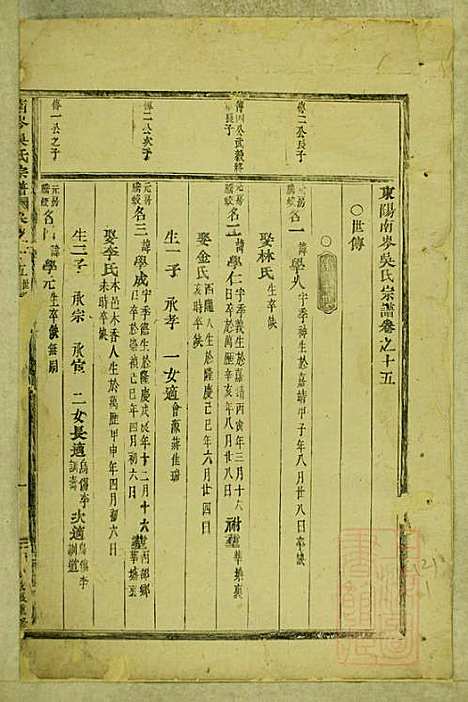 東陽南岑吳氏宗譜卷之十五
○世傳
傳二公長子
元房
名一 諱學八 字季神生於嘉靖甲子年八月廿八日卒缺
娶林氏 生卒缺
名二 諱學仁 字季義生於嘉靖丙寅年三月十六日卒於萬曆辛亥年八月廿八日
娶金氏 西隴人生於隆慶己巳年六月廿四日亥時卒缺
生一子 承孝 一女適
傳二公次子
元房
名三 諱學成 字季德生於隆慶戊辰年十二月十六日卒於崇禎己巳年四月初六日
娶李氏 木邑木香人生於萬曆甲申年四月初六日未時卒缺
生二子 承宗 承宦 二女長適 次適
傳一公之子
元房
諱學元 生卒缺無嗣
南岑吳氏宗譜